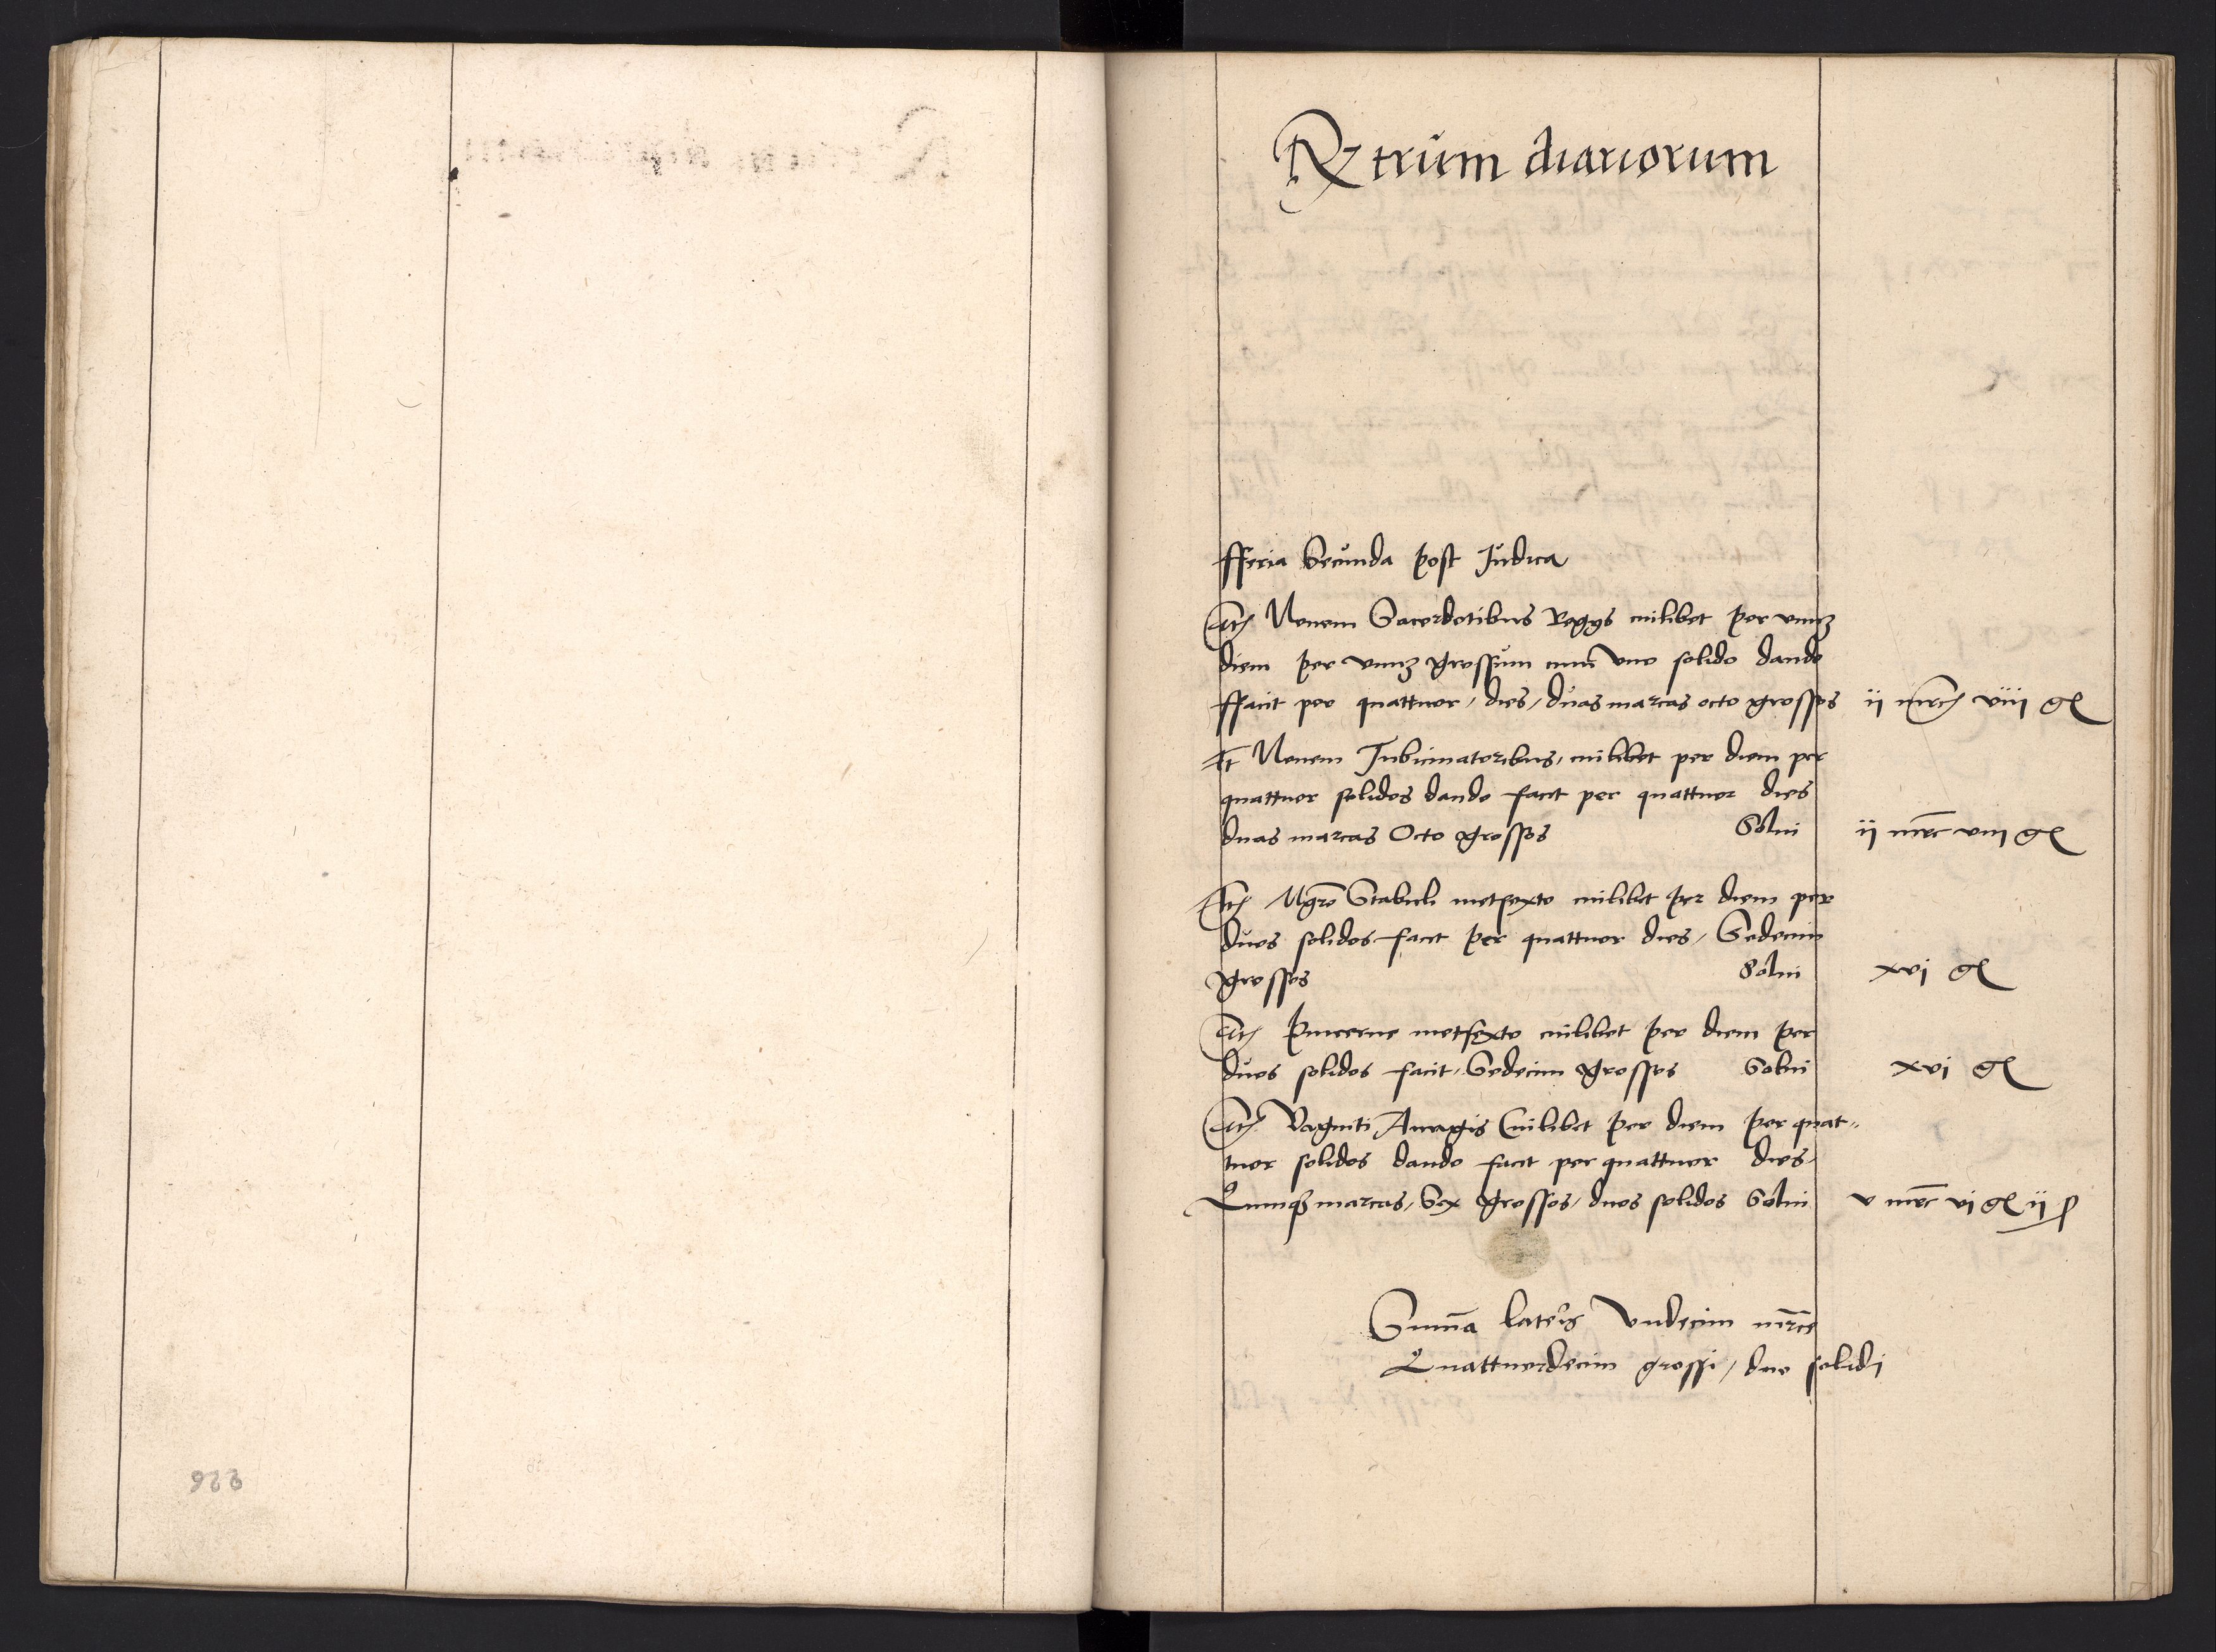 Rgrm diariorum
fferia Secunda post Iudica
Itm Nouem Sacerdotibus Regys cuilibet per vnuz
diem per vnuz grossum cum vno solido dando
ffacit per quattuor / dies / duas marcas octo grossos ij mrc viij gr
It Nouem Tubicinatoribus, cuilibet per diem per
quattuor solidos dando facit per quattuor dies
duas marcas Octo grossos Solui ij mrc viij gr
Itm Mgro Stabuli metsexto cuilibet per diem per
duos solidos facit per quattuor dies / Sedecim
grossos Solui xvi gr
Itm Pincerne metsexto cuilibet per diem per
duos solidos facit / Sedecim grossos Solui xvi gr
Itm Viginti Aurigis Cuilibet per diem per quat„
tuor solidos dando facit per quattuor dies /
Quinqz marcas / Sex grossos / duos solidos Solui v mrc vi gr ij ß
Suma lateris Vndecim mrce
Quattuordecim grossi / duo solidi
226